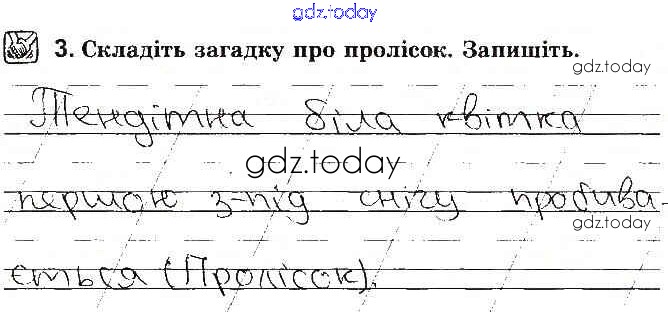 gdz.today
3. Складіть загадку про пролісок. Запишіть.
gdz.today
Тендітна біла квітка
gdz.today
першою з-під снігу пробива-
gdz.today
ється (Пролісок).